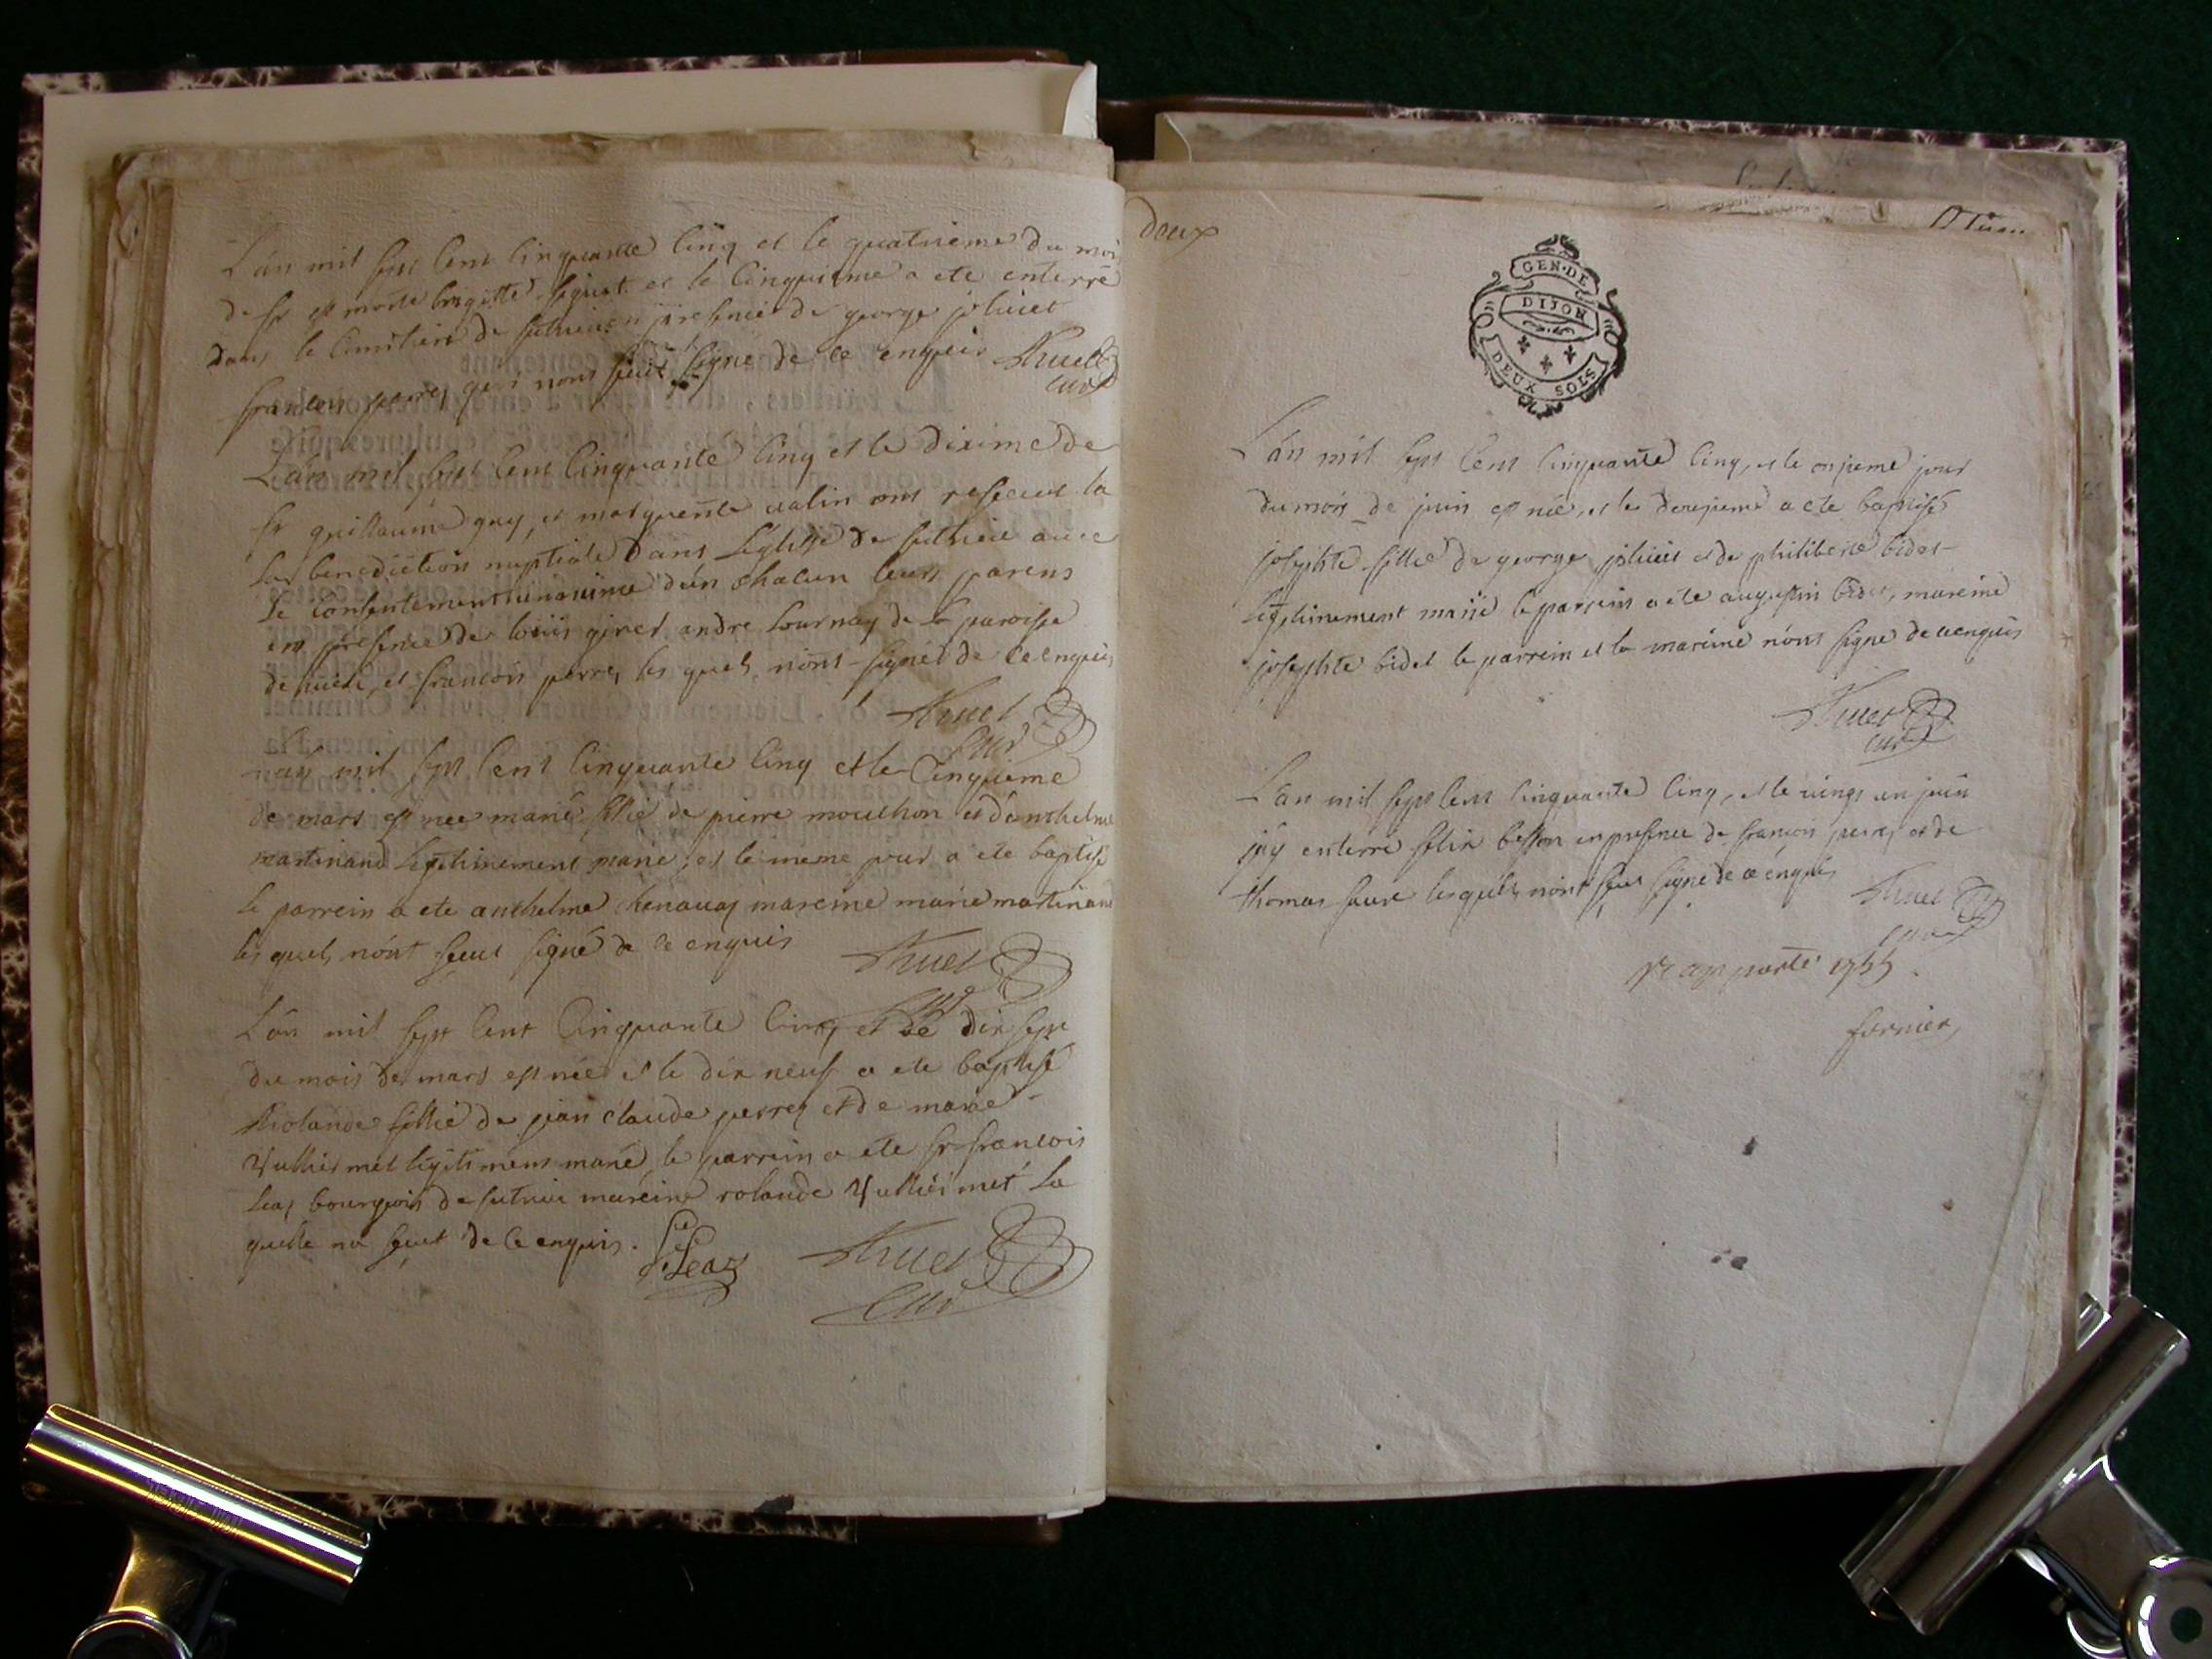 L'an mil sept cent cinquante cinq et le quatrieme du mois
de fr est morte brigitte et le cinquieme a ete enterré
dans le cimetiere de sutrieu en presence de george joliuet
francois perret qui n'ont sceut signe de ce enquis Huet
curé
L'an mil sept cent cinquante cinq et le dixime de
fr guillaume guy, et marguerite ualin ont resceut la
la benediction nuptiale dans L'eglise de sutrieu auec
le consentement unanime d'un chacun leurs parens
en presence de louis giret andre tournay de la paroisse
de et francois perret les quels n'ont signét de ce enquis
Huet
curé
L'an mil sept cent cinquante cinq et le Cinquieme
de mars est nee marie fillie de pierre mouthon et d'anthelme
martinand legitimement marie, et le meme jour a ete baptisé
le parrein a ete anthelme chenauaz mareine marie martinand
les quels n'ont sceut signé de ce enquis Huet
curé
L'an mil sept cent Cinquante cinq et le dix sept
du mois de mars est née et le dix neuf a ete baptisé
Rolande fillie de jean claude perret et de marie
Vulliermet legitimens marié le parrein a ete sr francois
Leaz bourgeois de sutrieu mareine rolande Vulliermet La
quelle na sceut de ce enquis. Leaz Huet
Curé
deux
GEN. DE
DIJON
DEUX SOLS
L'an mil sept cent cinquante cinq, et le onzieme jour
du mois de juin est née, et le douzieme a ete baptisé
josephte fillie de george joliuet et de philiberte bidet
legitimement marié le parrein a ete augustin bidet, mareine
josephte bidet le parrein et la mareine n'ont signe de ce enquis
Huet
curé
L'an mil sept cent cinquante cinq, et le uingt un juin
j'ay enterré felix besson en presence de francois perret et de
thomas faure lesquels n'ont sceut signe de ce enquis
Huet
curé
Rapporté 1755.
fornier